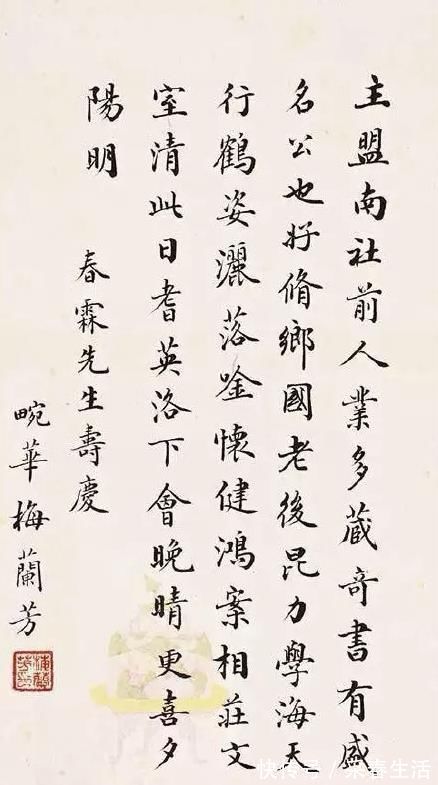 主盟南社前人業多蔵奇書有盛
名公也好脩鄉國老後昆力學海天
行鶴姿灑落唫懷健鴻案相莊文
室清此日耆英洛下會晚晴更喜夕
陽明
春霖先生壽慶
畹華梅蘭芳
快传号/春生活